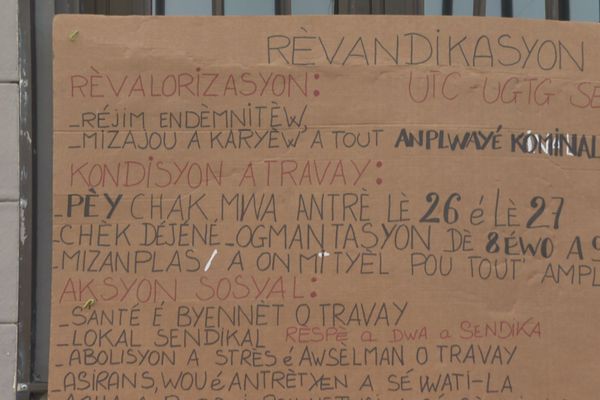 RÈVANDIKASYON
RÈVALORIZASYON: UTC-UGTG SE
-RÉJIM ENDÈMNITÈW,
-MIZAJOU A KARYÈW A TOUT ANPLWAYÉ KOMINAL
KONDISYON A TRAVAY:
-PÈY CHAK MWA ANTRÈ LÈ 26 é LÈ 27
-CHÈK DÉJÉNÉ -OGMANTASYON DÈ 8 ÉWO A 9
-MIZANPLAS / A ON MITYÈL POU TOUT' AMPL
AKSYON SOSYAL:
-SANTÉ É BYENNÈT O TRAVAY
-LOKAL SENDIKAL RÈSPÈ A DWA A SENDIKA
-ABOLISYON A STRÈS é AWSÈLMAN O TRAVAY
-ASIRANS, WOU é ANTRÈTYEN A SÉ WATI-LA